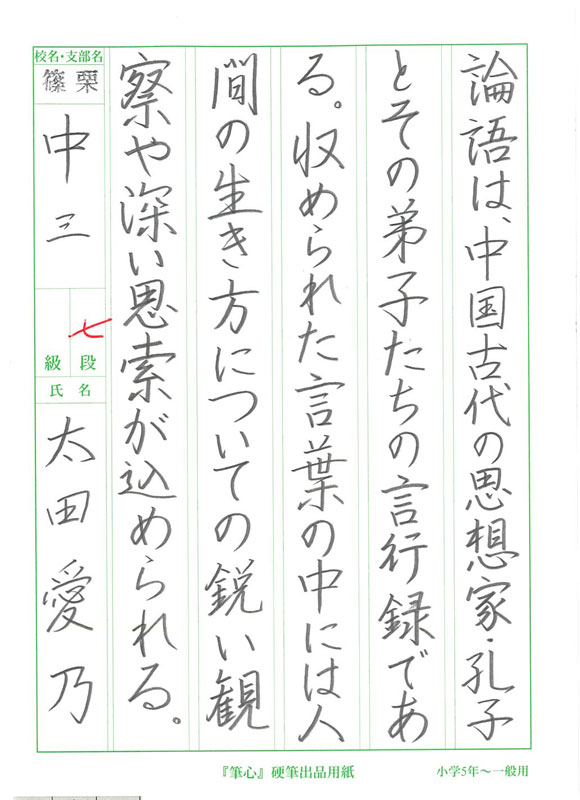 論語は、中国古代の思想家・孔子
とその弟子たちの言行録であ
る。収められた言葉の中には人
間の生き方についての鋭い観
察や深い思索が込められる。
校名・支部名
篠栗
中三
七
級 段
氏 名
太田愛乃
『筆心』硬筆出品用紙
小学5年〜一般用